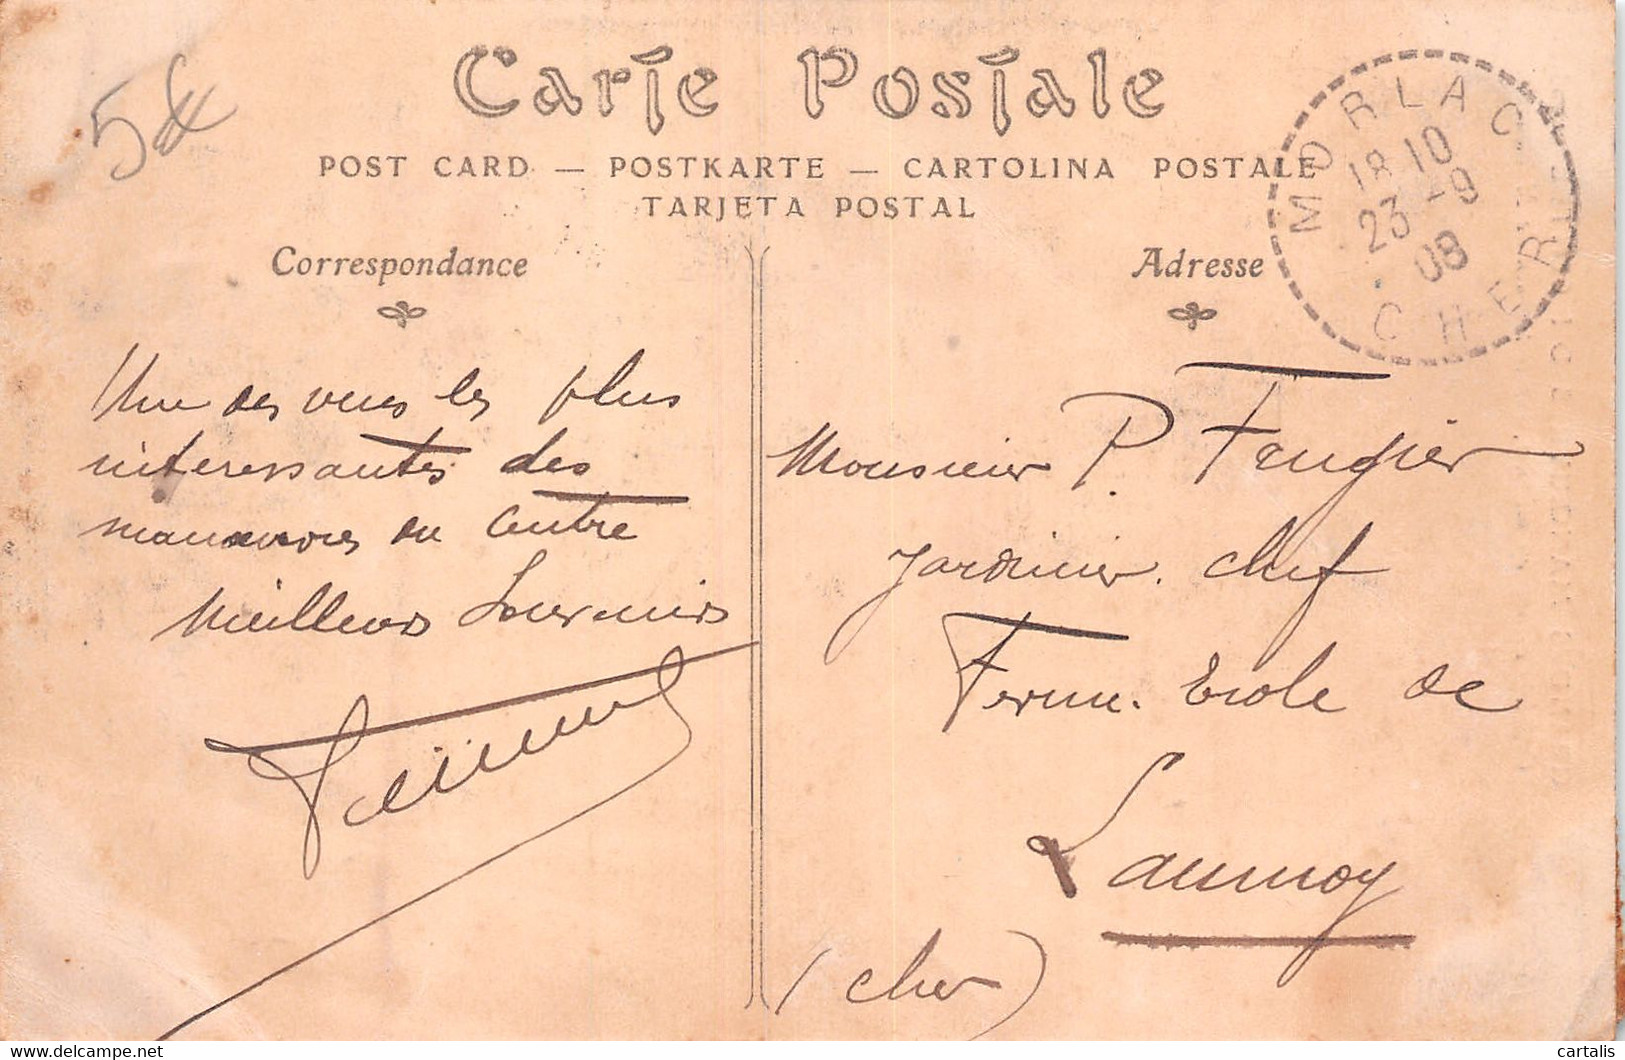 5
Carte Postale
POST CARD — POSTKARTE — CARTOLINA POSTALE
TARJETA POSTAL
MORLAC
18 10
23 -9
08
CHER
Correspondance
Adresse
Une des vues les plus
interessantes des
manœuvres du Centre
Meilleurs Souvenirs
Monsieur P. Faugier
Jardinier. Chef
Ferme. Ecole de
Launoy
(Cher)
www.delcampe.net
cartalis